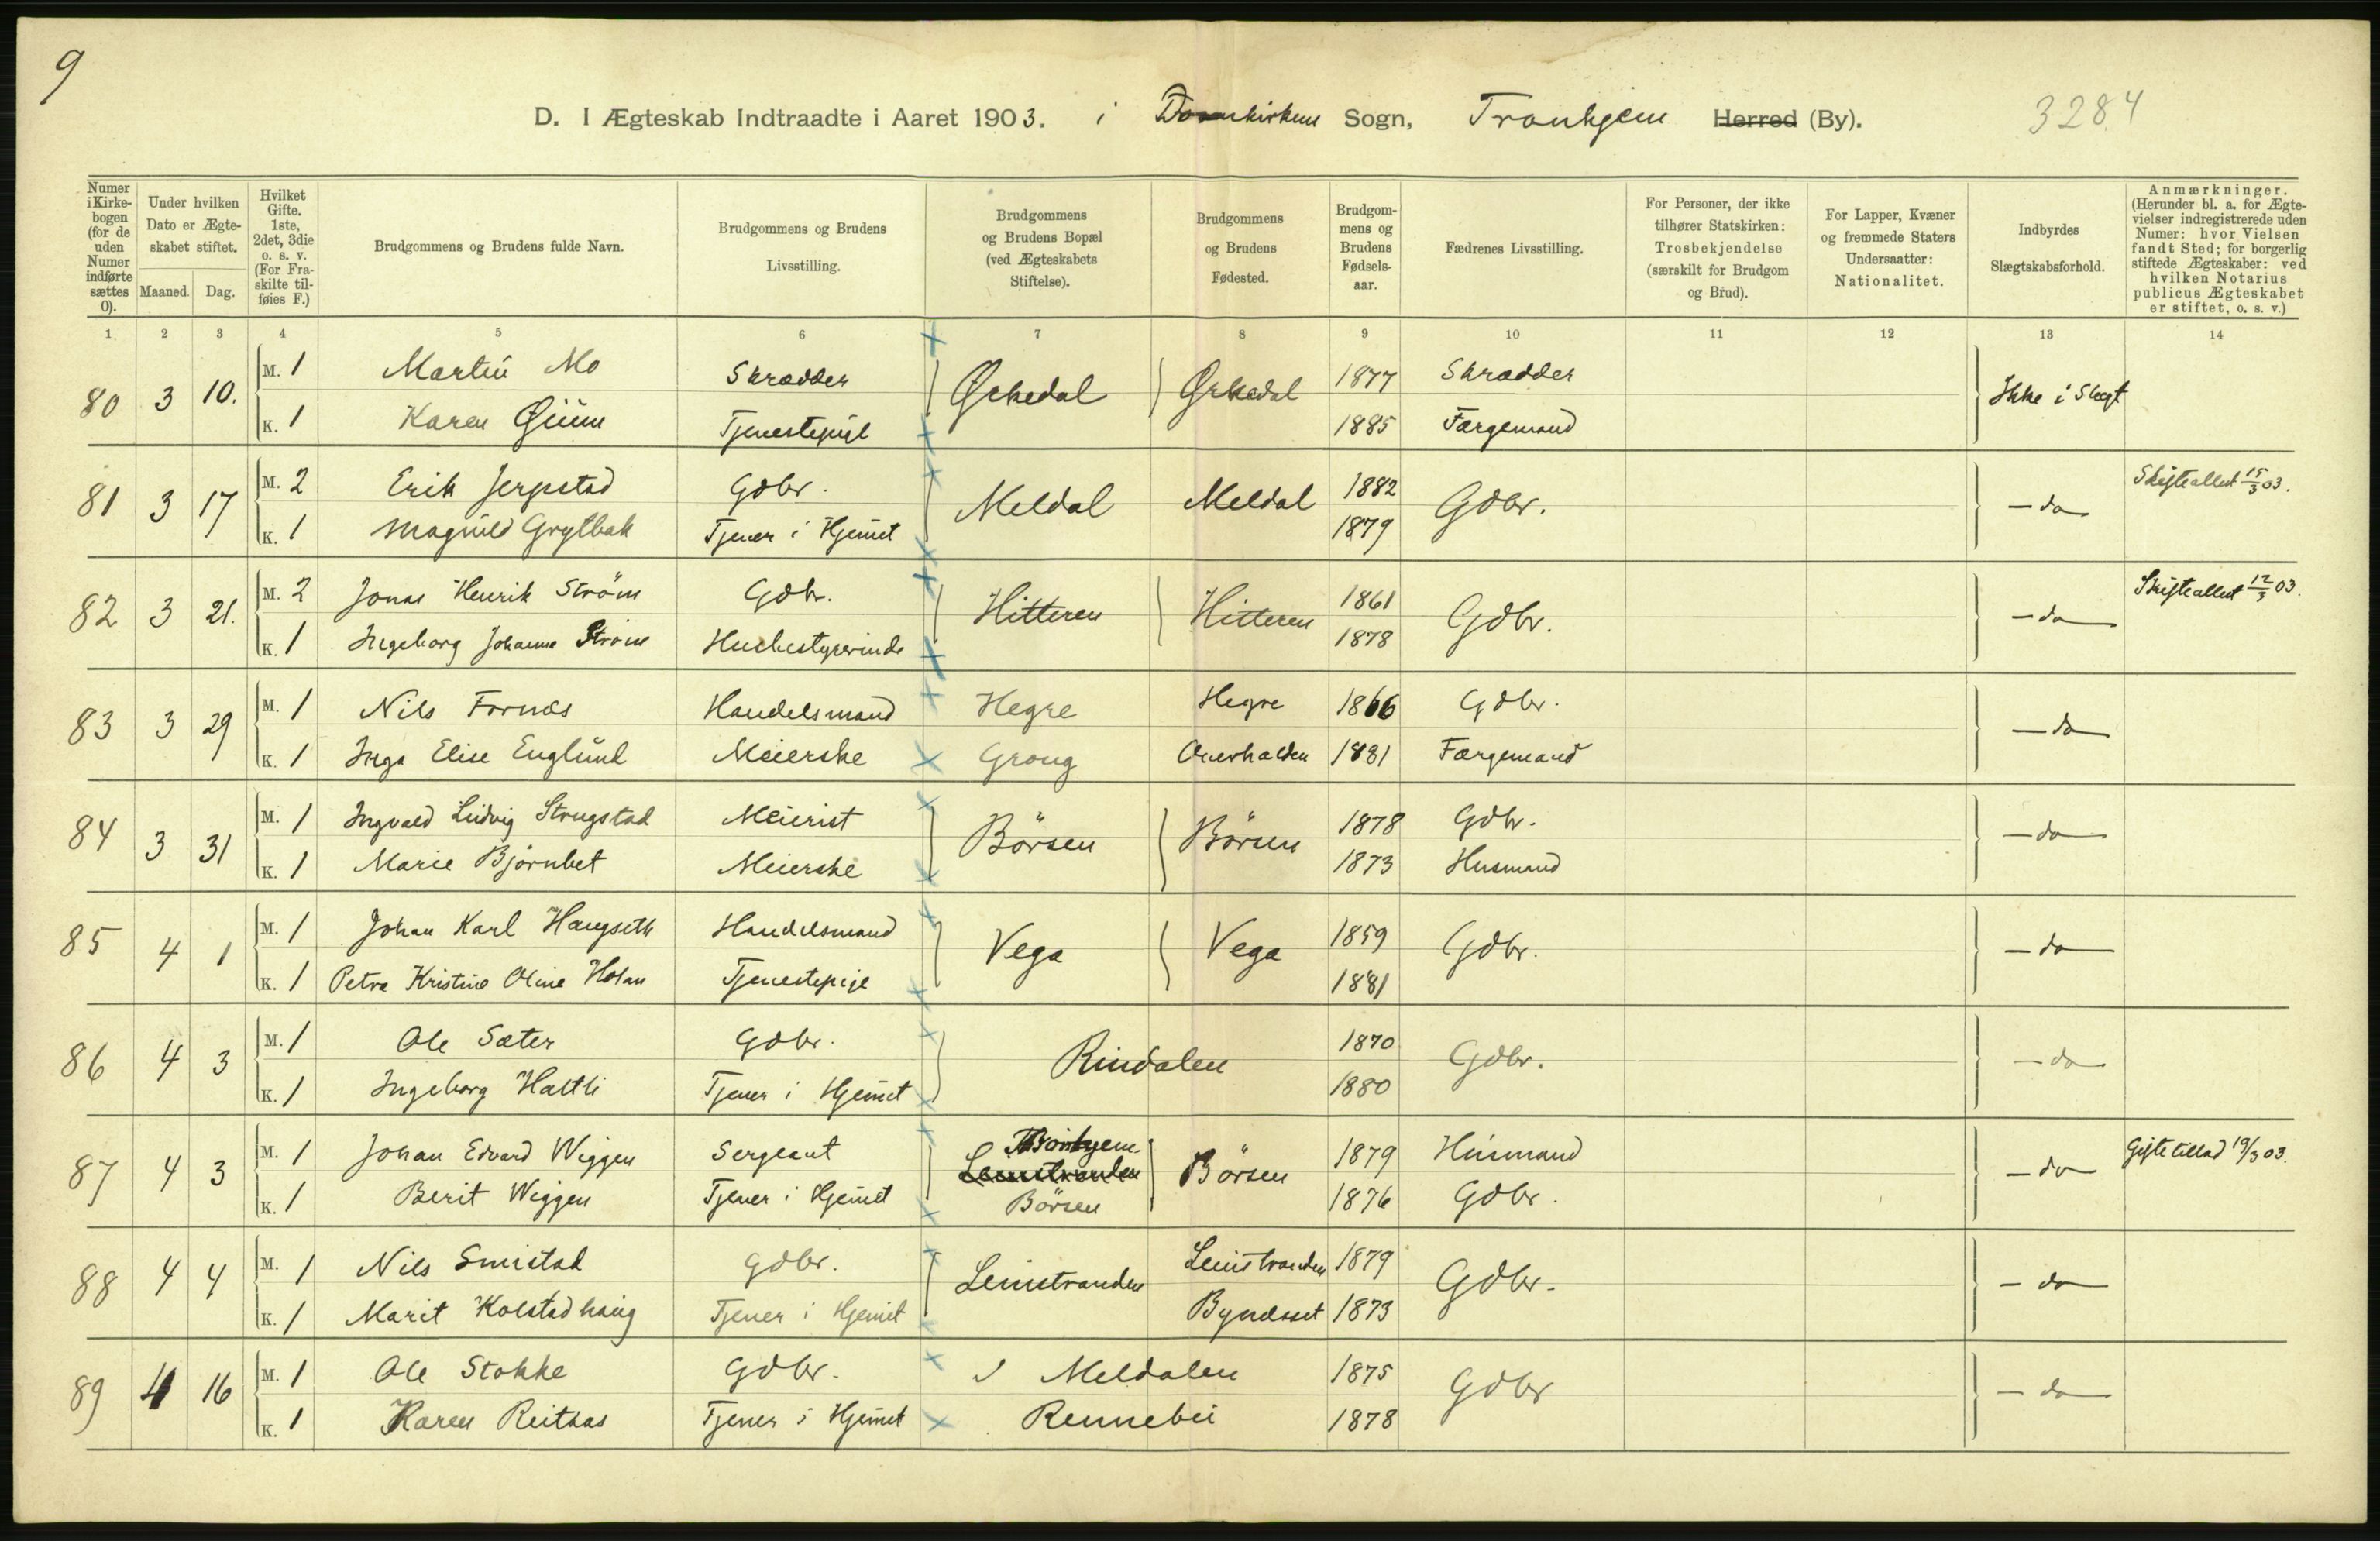 9
D. I Ægteskab Indtraadte i Aaret 1903. i Domkirkens Sogn, Tronhjem Herred (By). 3284
Numer i Kirke-bogen (for de uden Numer indførte sættes 0).
Under hvilken Dato er Ægte-skabet stiftet.
Maaned. Dag.
Hvilket Gifte. 1ste, 2det, 3die o. s. v. (For Fra-skilte til-føies F.)
Brudgommens og Brudens fulde Navn.
Brudgommens og Brudens Livsstilling.
Brudgommens og Brudens Bopæl (ved Ægteskabets Stiftelse).
Brudgommens og Brudens Fødested.
Brudgom-mens og Brudens Fødsels-aar.
Fædrenes Livsstilling.
For Personer, der ikke tilhører Statskirken: Trosbekjendelse (særskilt for Brudgom og Brud).
For Lapper, Kvæner og fremmede Staters Undersaatter: Nationalitet.
Indbyrdes Slægtskabsforhold.
Anmærkninger. (Herunder bl. a. for Ægte-vielser indregistrerede uden Numer: hvor Vielsen fandt Sted; for borgerlig stiftede Ægteskaber: ved hvilken Notarius publicus Ægteskabet er stiftet, o. s. v.)
1 2 3 4 5 6 7 8 9 10 11 12 13 14
80 3 10. M. 1 Martin Mo Skrædder Ørkedal Ørkedal 1877 Skrædder Ikke i Slegt
K. 1 Karen Giüm Tjenestepige 1885 Færgemand
81 3 17 M. 2 Erik Jerpstad Gdbr. Meldal Meldal 1882 Gdbr. — do Skifteattest 15/3 03.
K. 1 Magnild Grytbak Tjener i Hjemet 1879
82 3 21. M. 2 Jonas Henrik Ström Gdbr. Hitteren Hitteren 1861 Gdbr. — do Skifteattest 12/3 03.
K. 1 Ingeborg Johanne Ström Husbestyrerinde 1878
83 3 29 M. 1 Nils Fornæs Handelsmand Hegre Hegre 1866 Gdbr. — do
K. 1 Inga Elise Englund Meierske Grong Overhalden 1881 Færgemand
84 3 31 M. 1 Ingvald Ludvig Strugstad Meierist Börsen Börsen 1878 Gdbr. — do
K. 1 Marie Björnbet Meierske 1873 Husmand
85 4 1 M. 1 Johan Karl Haugseth Handelsmand Vega Vega 1859 Gdbr. — do
K. 1 Petra Kristine Oline Holan Tjenestepige 1881
86 4 3 M. 1 Ole Sæter Gdbr. Rindalen 1870 Gdbr. — do
K. 1 Ingeborg Haltli Tjener i Hjemet 1880
87 4 3 M. 1 Johan Edvard Wiggen Sergeant Leinstranden Börsen 1879 Husmand — do Giftetillad 19/3 03.
K. 1 Berit Wiggen Tjener i Hjemet Börsen 1876 Gdbr.
88 4 4 M. 1 Nils Smistad Gdbr. Leinstranden Leinstranden 1879 Gdbr. — do
K. 1 Marit Kolstadhaug Tjener i Hjemet Byneset 1873
89 4 16 M. 1 Ole Stokke Gdbr. Meldalen 1875 Gdbr — do
K. 1 Karen Reitaas Tjener i Hjemet Rennebu 1878